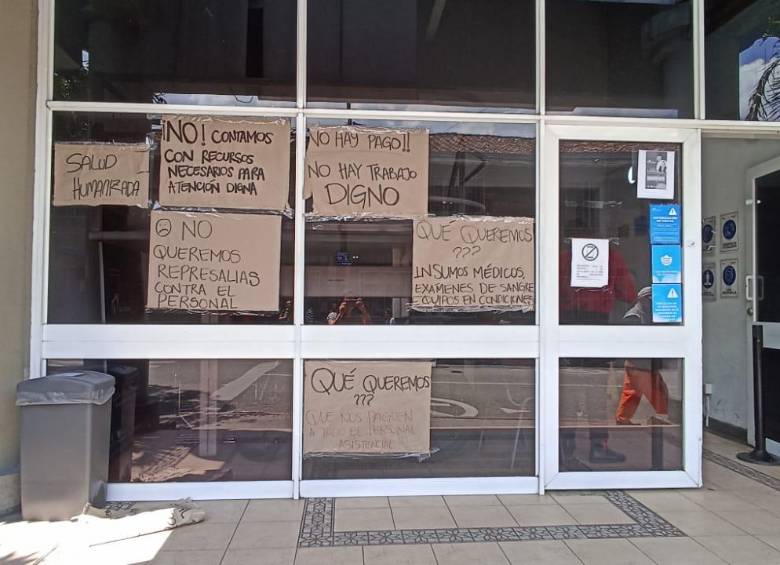 SALUD
HUMANIZADA
¡NO! CONTAMOS
CON RECURSOS
NECESARIOS PARA
ATENCIÓN DIGNA
NO HAY PAGO!!
NO HAY TRABAJO
DIGNO
NO
QUEREMOS
REPRESALIAS
CONTRA EL
PERSONAL
QUÉ QUEREMOS
???
INSUMOS MÉDICOS,
EXAMENES DE SANGRE
EQUIPOS EN CONDICIONES
QUÉ QUEREMOS
???
QUE NOS PAGUEN
A TODO EL PERSONAL
ASISTENCIAL